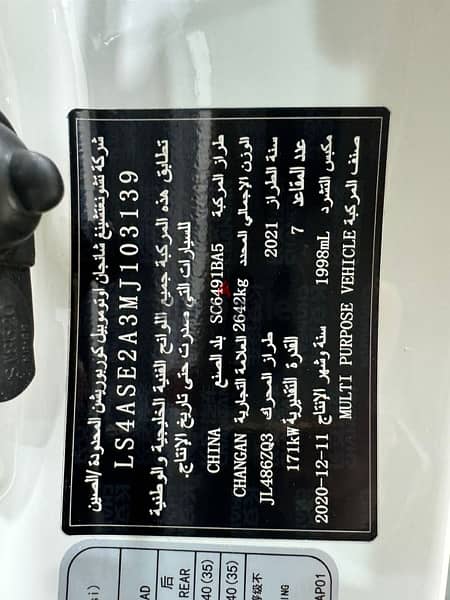 شركة تشونغتشينغ شانجان اوتوموبيل كوربوريشن المحدودة /الصين
LS4ASE2A3MJ103139
تطابق هذه المركبة جميع اللوائح الفنية الخليجية والوطنية
للسيارات التي صدرت حتى تاريخ الإنتاج.
طراز المركبة SC6491BA5 بلد الصنع CHINA
الوزن الإجمالي المحدد 2642kg العلامة التجارية CHANGAN
سنة الطراز 2021 طراز المحرك JL486ZQ3
عدد المقاعد 7 القدرة التقديرية 171kW
مكبس التشرد 1998mL سنة وشهر الإنتاج 2020-12-11
صنف المركبة MULTI PURPOSE VEHICLE
后
REAR
40 (35)
40 (35)
AP01